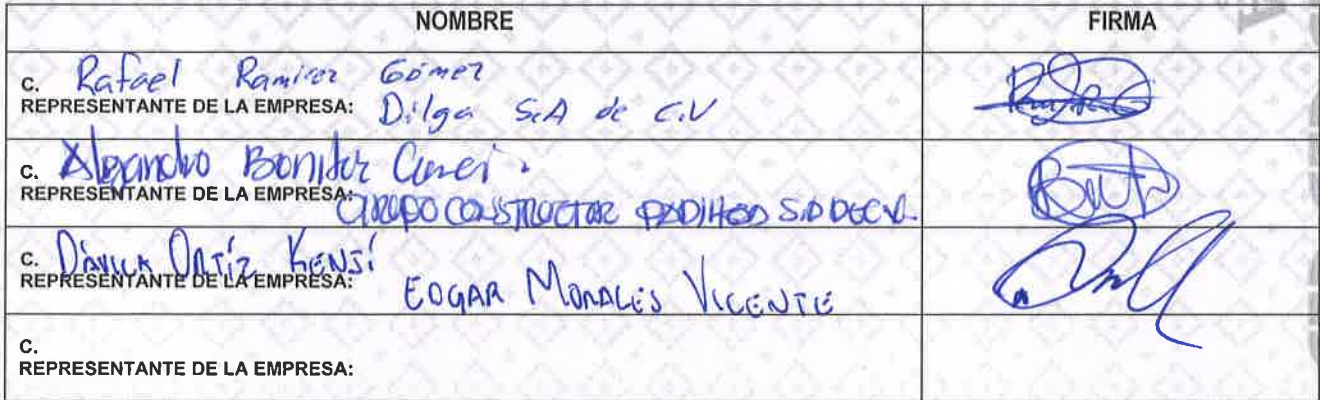 NOMBRE FIRMA
C. Rafael Ramirez Gómez
REPRESENTANTE DE LA EMPRESA: Dilga S.A de C.V
C. Alejandro Bonifaz
REPRESENTANTE DE LA EMPRESA: GRUPO CONSTRUCTOR
C. DÁVILA ORTÍZ KENSÍ
REPRESENTANTE DE LA EMPRESA: EDGAR MORALES VICENTE
C.
REPRESENTANTE DE LA EMPRESA: